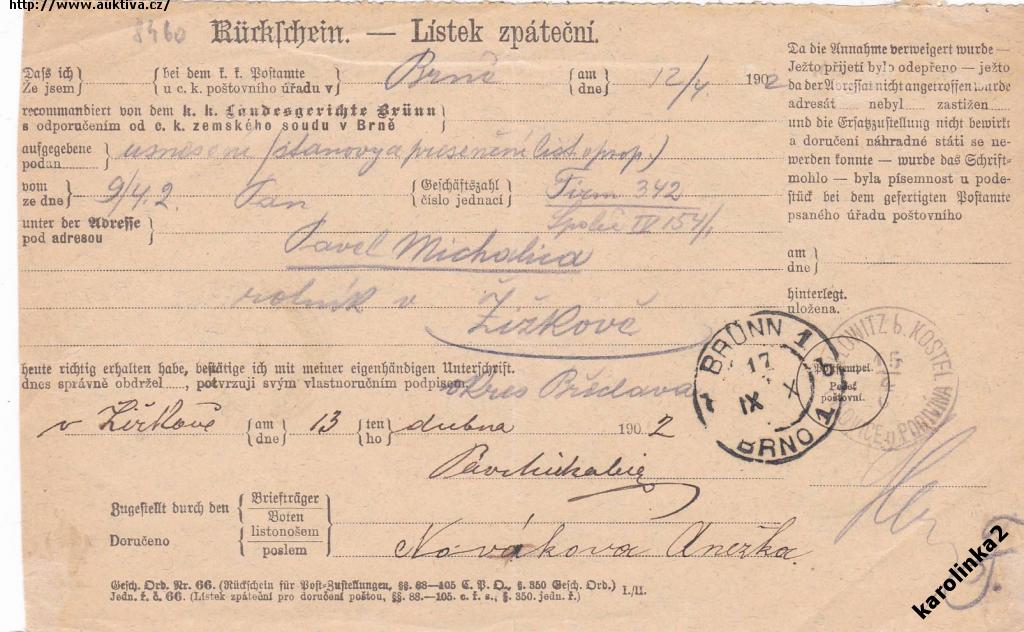 http://www.auktiva.cz/
8460
Rückschein. — Lístek zpáteční.
Dass ich
Že jsem
bei dem k. k. Postamte
u c. k. poštovního úřadu v
Brně
am
dne
12/4 1902
recommandiert von dem k. k. Landesgerichte Brünn
s odporučením od c. k. zemského soudu v Brně
aufgegebene
podan
usnesení (stanovy a
vom
ze dne
9/4.2. Pan
Geschäftszahl
číslo jednací
Firm 342
Spolč IV 154/1
unter der Adresse
pod adresou
Pavel Michalica
rolník v
Žižkově
heute richtig erhalten habe, bestätige ich mit meiner eigenhändigen Unterschrift.
dnes správně obdržel...., potvrzuji svým vlastnoručním podpisem.
okres Břeclava
v Žižkově
am
dne
13
ten
ho
dubna 1902
Zugestellt durch den
Doručeno
Briefträger
Boten
listonošem
poslem
Nováková Anežka.
Gesch. Ord. Nr. 66. (Rückschein für Post-Zustellungen, §§. 88—105 C. P. O., §. 350 Gesch. Ord.)
Jedn. ř. č. 66. (Lístek zpáteční pro doručení poštou, §§. 88.—105. c. ř. s., §. 350. jedn. ř.)
I./II.
Da die Annahme verweigert wurde —
Ježto přijetí bylo odepřeno — ježto
da der Adressat nicht angetroffen wurde
adresát nebyl zastižen
und die Ersatzzustellung nicht bewirkt
a doručení náhradné státi se ne-
werden konnte — wurde das Schrift-
mohlo — byla písemnost u pode-
stück bei dem gefertigten Postamte
psaného úřadu poštovního
am
dne
hinterlegt.
uložena.
Poststempel.
Pečeť
poštovní.
BRÜNN 1
17
IX
BRNO 1
LOWITZ b. KOSTEL
karolinka2